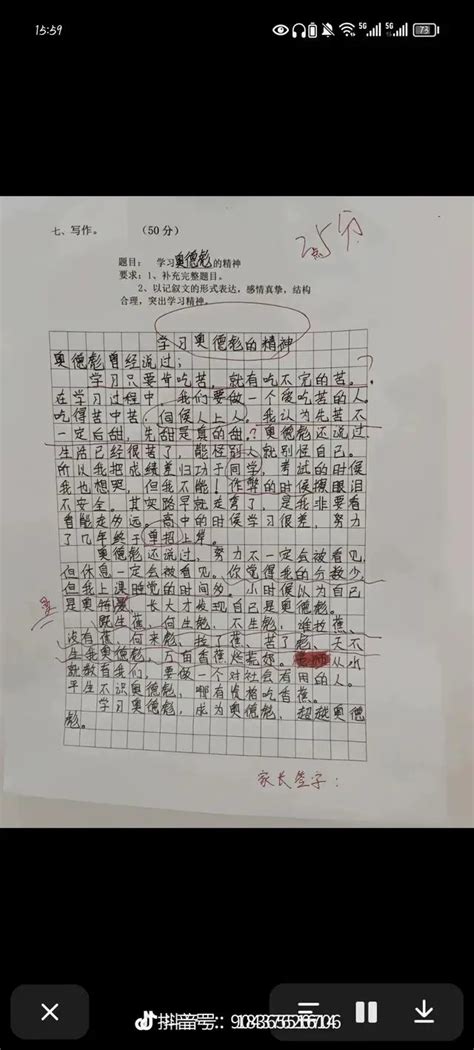 15:59
5G
5G
73
25分
七、写作。 （50分）
题目： 学习奥德彪的精神
要求：1、补充完整题目。
2、以记叙文的形式表达，感情真挚，结构
合理，突出学习精神。
学习奥德彪的精神
奥德彪曾经说过：
学习只要肯吃苦，就有吃不完的苦。?
在学习过程中，我们要做一个爱吃苦的人。
吃得苦中苦，伺候人上人。我认为先苦不
一定后甜，先甜是真的甜。?奥德彪还说过，
生活已经很苦了，能怪别人就别怪自己。
所以我把成绩差归功于同学，考试的时候
我也想哭，但我不能！作弊的时候擦眼泪
不安全。其实路早就走弯了，是我非要看
看能走多远。高中的时候学习很差，努力
了几年终于单招上岸。
奥德彪还说过，努力不一定会被看见，
但休息一定会被看见。你觉得我的分数少，
但我上课睡觉的时间多。小时候以为自己
是奥特曼，长大才发现自己是奥德彪。
既生蕉，何生彪，不生彪，谁拉蕉，
没有蕉，何来彪，拉了蕉，苦了彪，天不
生我奥德彪，万亩香蕉烂荒郊。老师从小
就教育我们，要做一个对社会有用的人。
平生不识奥德彪，哪有
吃香蕉。
学习奥德彪，成为奥德彪，超越奥德
彪。
家长签字：
抖音号：